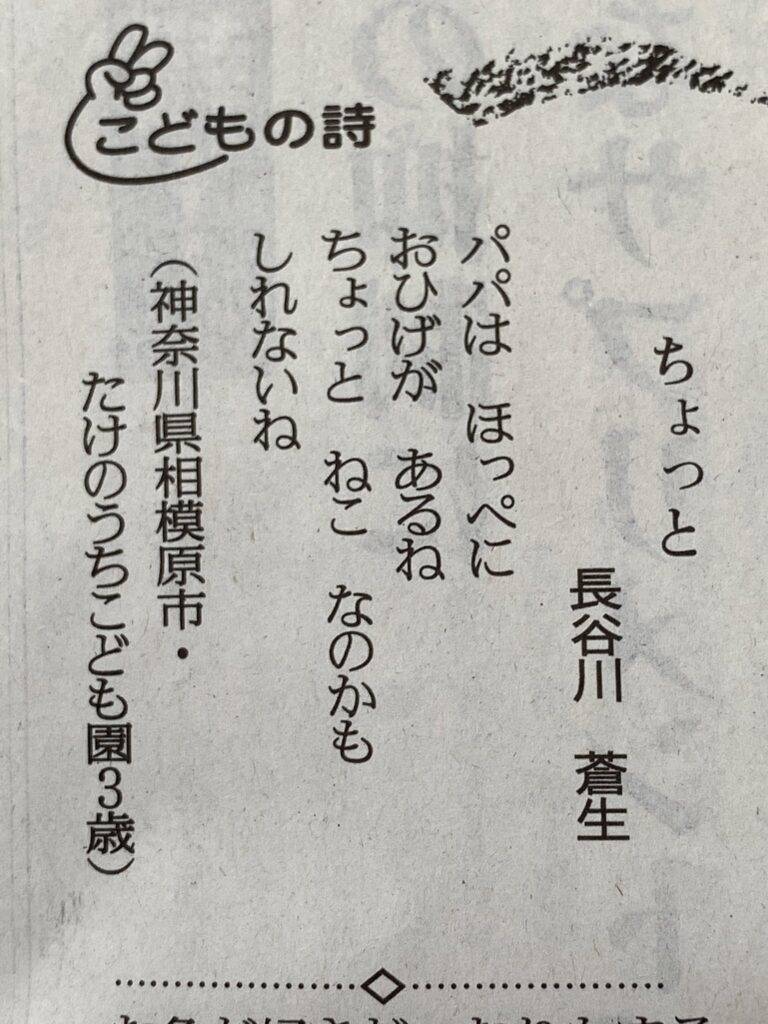 こどもの詩
ちょっと
長谷川 蒼生
パパは ほっぺに
おひげが あるね
ちょっと ねこ なのかも
しれないね
（神奈川県相模原市・
たけのうちこども園3歳）